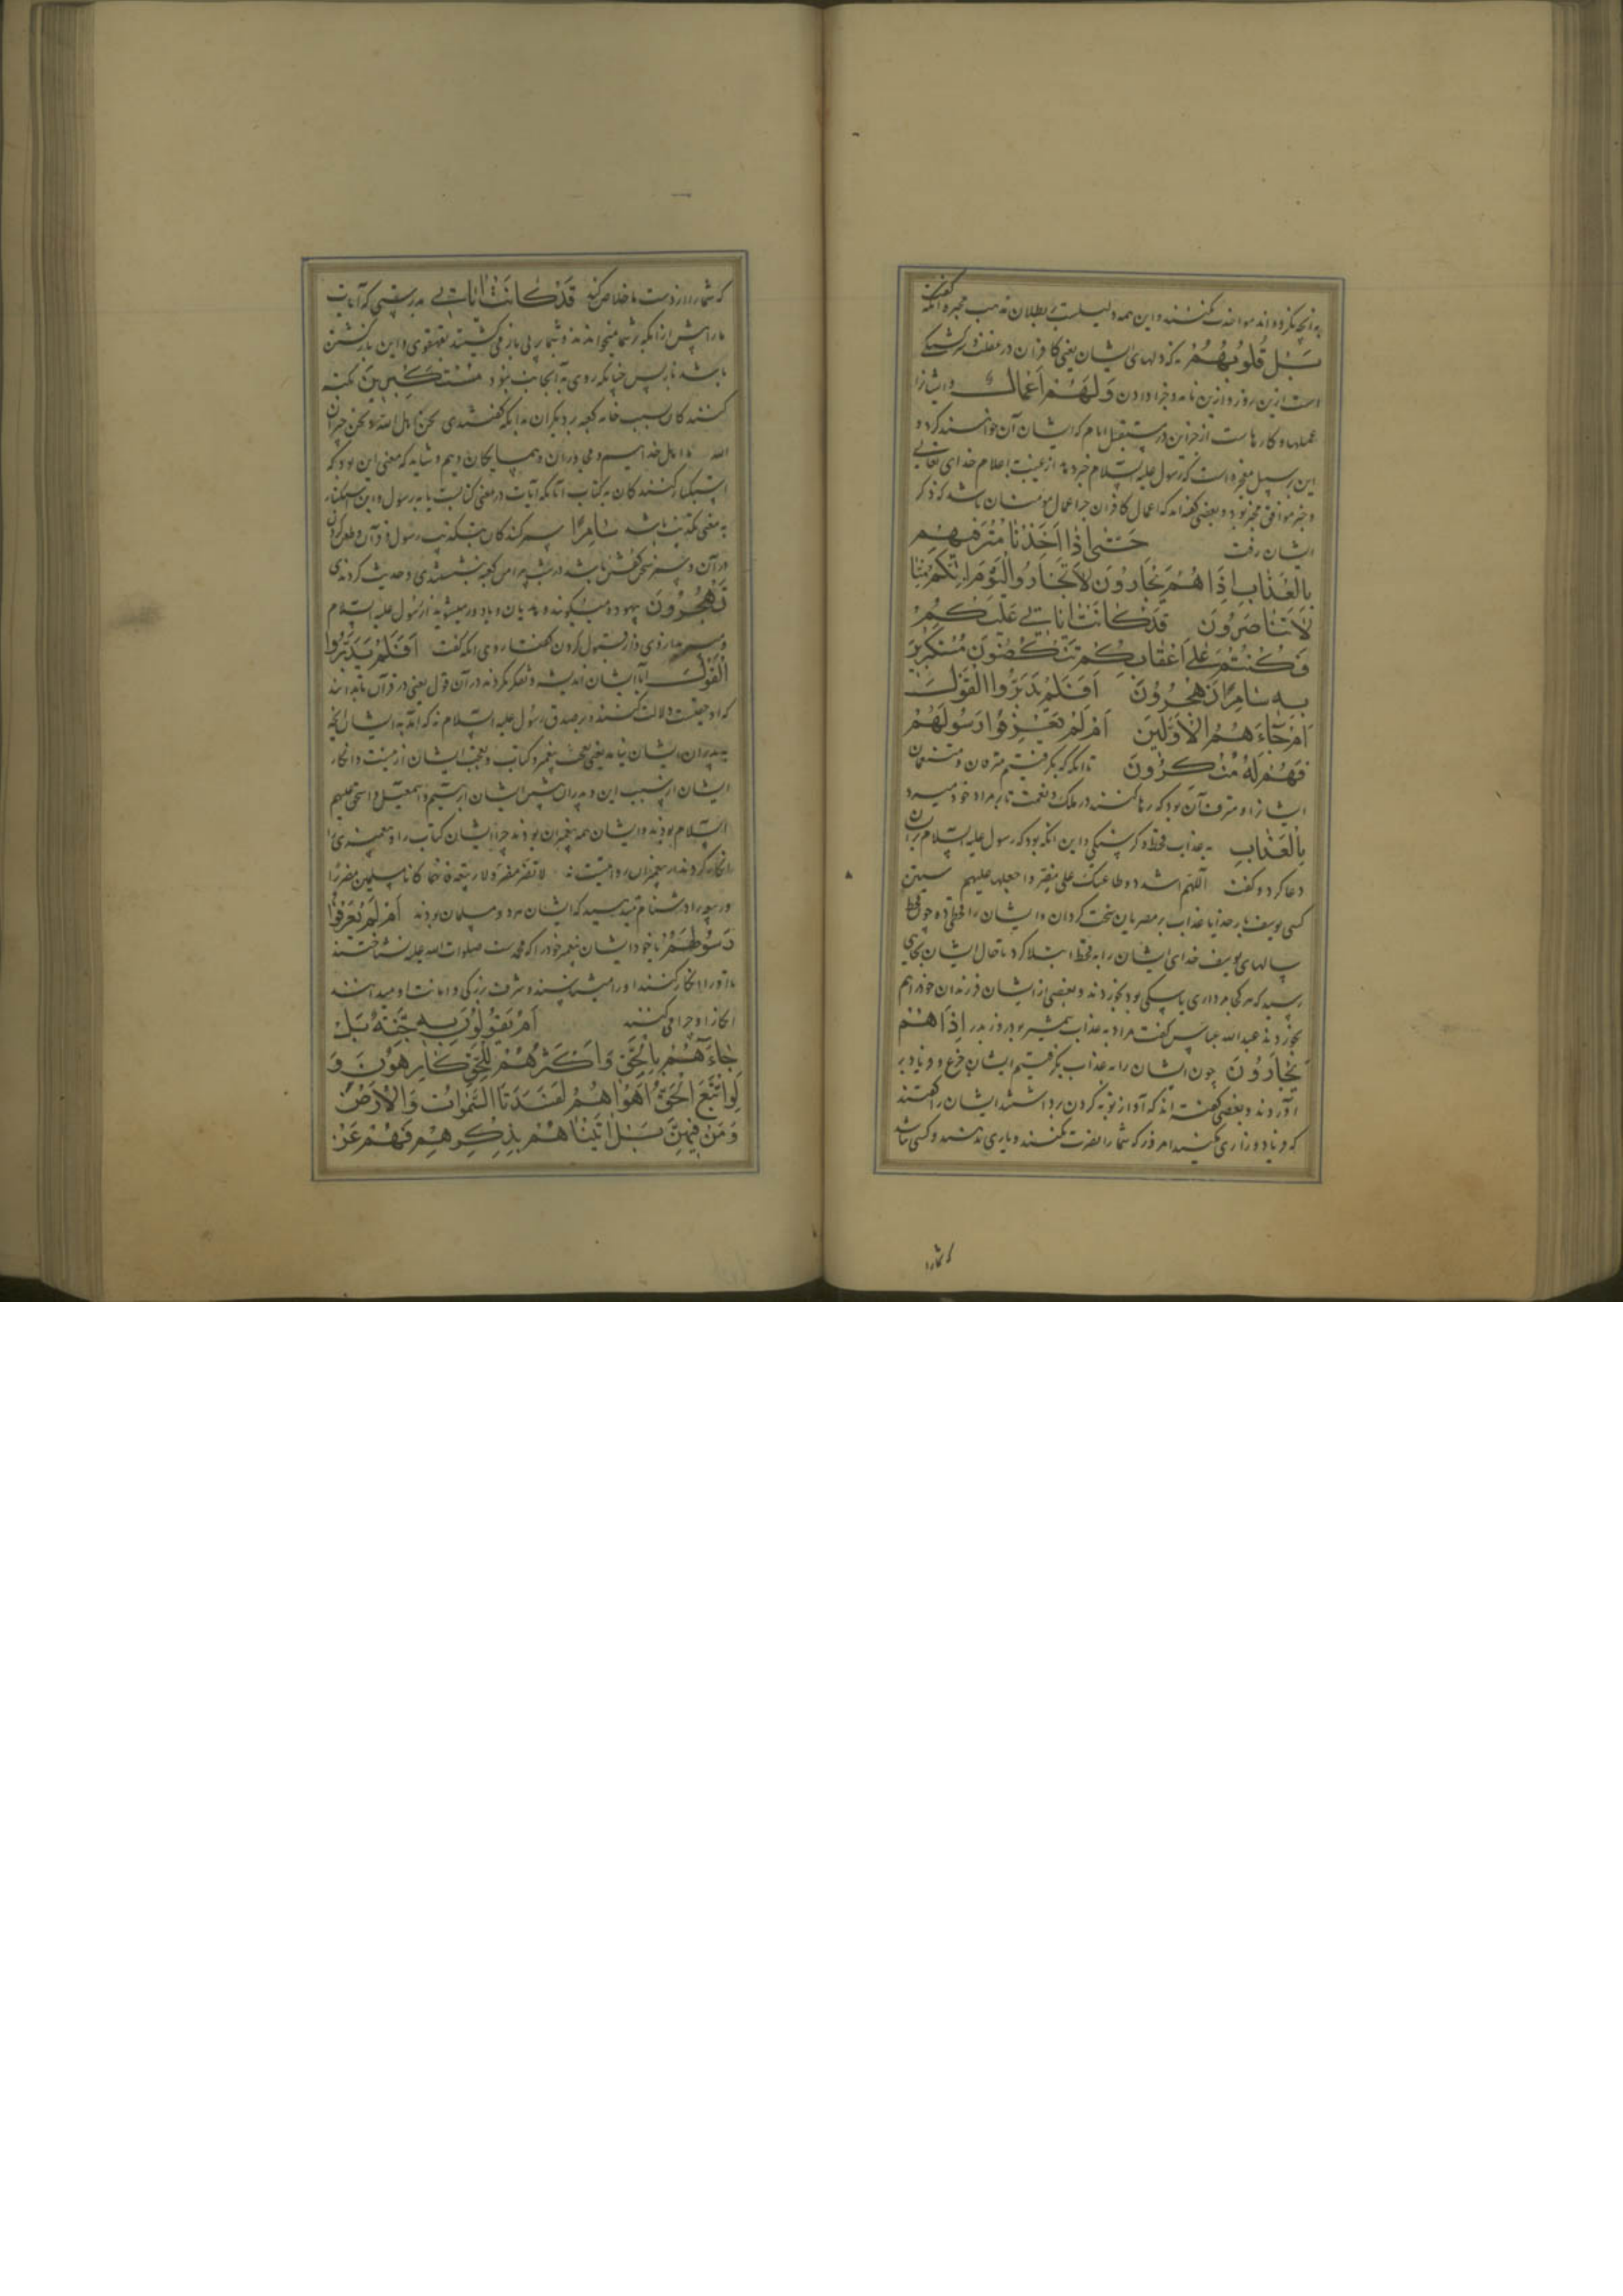 به آنچه نکرده‌اند مواخذت نکنند و این همه دلیلست بر بطلان مذهب مجبره آنگه گفت
بَل قُلوبُهُم نه که دلهای ایشان یعنی کافران در غفلت
است ازین روز و ازین نامه و جزا دادن وَلَهُم اَعمالٌ و ایشانرا
عملها و کارهاست از جز این در مستقبل ایام که ایشان آن خواهند کرد و
این بر سبیل معجزه است که رسول علیه السلام خبر دهد از غیب باعلام خدای تعالی
و خبر موافق مخبر بود و بعضی گفته‌اند که اعمال کافران جز اعمال مومنان باشد که ذکر
ایشان رفت حَتّی اِذا اَخَذنا مُترَفیهِم
بِالعَذابِ اِذا هُم یَجأرُونَ لا تَجأرُوا الیَومَ اِنَّکُم مِنّا
لا تُنصَرُونَ قَد کانَت ایاتی تُتلی عَلَیکُم
فَکُنتُم عَلی اَعقابِکُم تَنکِصُونَ مُستَکبِرینَ
بِهِ سامِرًا تَهجُرُونَ اَفَلَم یَدَّبَّرُوا القَولَ
اَم جاءَهُم الاَوَّلینَ اَم لَم یَعرِفُوا رَسُولَهُم
فَهُم لَهُ مُنکِرُونَ تا آنگه که بگرفتیم مترفان و متنعمان
ایشانرا و مترف آن بود که رها کنند در ملک و نعمت تا بر مراد خود میرود
بِالعَذابِ به عذاب قحط و گرسنگی و این آنگه بود که رسول علیه السلام بر ایشان
دعا کرد و گفت اللهم اشدد وطاتک علی مضر واجعلها علیهم سنین
کسنی یوسف بار خدایا عذاب بر مضریان سخت گردان و ایشان را قحطی ده چون قحط
سالهای یوسف خدای ایشان را به قحط ابتلا کرد تا حال ایشان بجایی
رسید که هر کجا مرداری یا سگی بود بخوردند و بعضی از ایشان فرزندان خود را هم
بخوردند عبدالله عباس گفت مراد به عذاب شمشیر بود روز بدر اِذا هُم
یَجأرُونَ چون ایشان را به عذاب بگرفتیم ایشان جزع و فریاد بر
آوردند و بعضی گفته‌اند که آواز توبه کردن برداشتند ایشان را گفتند
که فریاد و زاری مکنید امروز که شما را نصرت نکنند و یاری ندهند و کسی نباشد
که شما را
که شما را از دست ما خلاص کند قَد کانَت ایاتی بدرستی که آیات
ما را پیش ازین که بر شما میخواندند و شما بر پی باز می‌گشتید بقهقری و این بازگشتن
باشد باز پس چنانکه روی به آنجانب بود مُستَکبِرینَ تکبر
کنندگان بسبب خانه کعبه بر دیگران به آنکه گفتندی نحن اهل الله و نحن جیران
الله ما اهل خداییم و مجاوران و همسایگان ویم و شاید که معنی این بود که
استکبار کنندگان به کتاب آنانکه آیات در معنی کتابست یا به رسول و این استکبار
به معنی تکذیب باشد سامِرًا سمرکنندگان بتکذیب رسول و قرآن و طعن کردن
در آن و سمر سخن گفتن باشد در شب پیرامن کعبه بنشستندی و حدیث کردندی
تَهجُرُونَ بیهوده میگویند و هذیان و یا دور میشوید از رسول علیه السلام
و سر می‌ از وی و از قبول کردن گفتار وی آنگه گفت اَفَلَم یَدَّبَّرُوا
القَولَ آیا ایشان اندیشه و تفکر نکردند در آن قول یعنی در قرآن تا بدانند
که او حقست و دلالت کنند بر صدق رسول علیه السلام نه که آمد به ایشان آنچه
به پدران ایشان نیامد یعنی بعثت پیغمبر و کتاب و تعجب ایشان ازینست و انکار
ایشان از سبب این و پدران پیش ایشان ابرهیم و اسمعیل و اسحق علیهم
السلام بودند و ایشان همه پیغمبران بودند چرا ایشان کتاب را و پیغمبری را
انکار کردند و پیغمبران روایتست که لا تسبّوا مضر و لا ربیعة فانهما کانا مسلمین مضر را
و ربیعه را دشنام مدهید که ایشان هر دو مسلمان بودند اَم لَم یَعرِفُوا
رَسُولَهُم یا خود ایشان پیغمبر خود را که محمد است صلوات الله علیه نشناختند
تا او را انکار کنند او را میشناسند و شرف و بزرگی و امانت او میدانند
انکار او چرا می‌کنند اَم یَقُولُونَ بِهِ جِنَّةٌ بَل
جاءَهُم بِالحَقِّ وَاَکثَرُهُم لِلحَقِّ کارِهُونَ وَ
لَوِ اتَّبَعَ الحَقُّ اَهواءَهُم لَفَسَدَتِ السَّمواتُ وَالاَرضُ
وَمَن فیهِنَّ بَل اَتَیناهُم بِذِکرِهِم فَهُم عَن